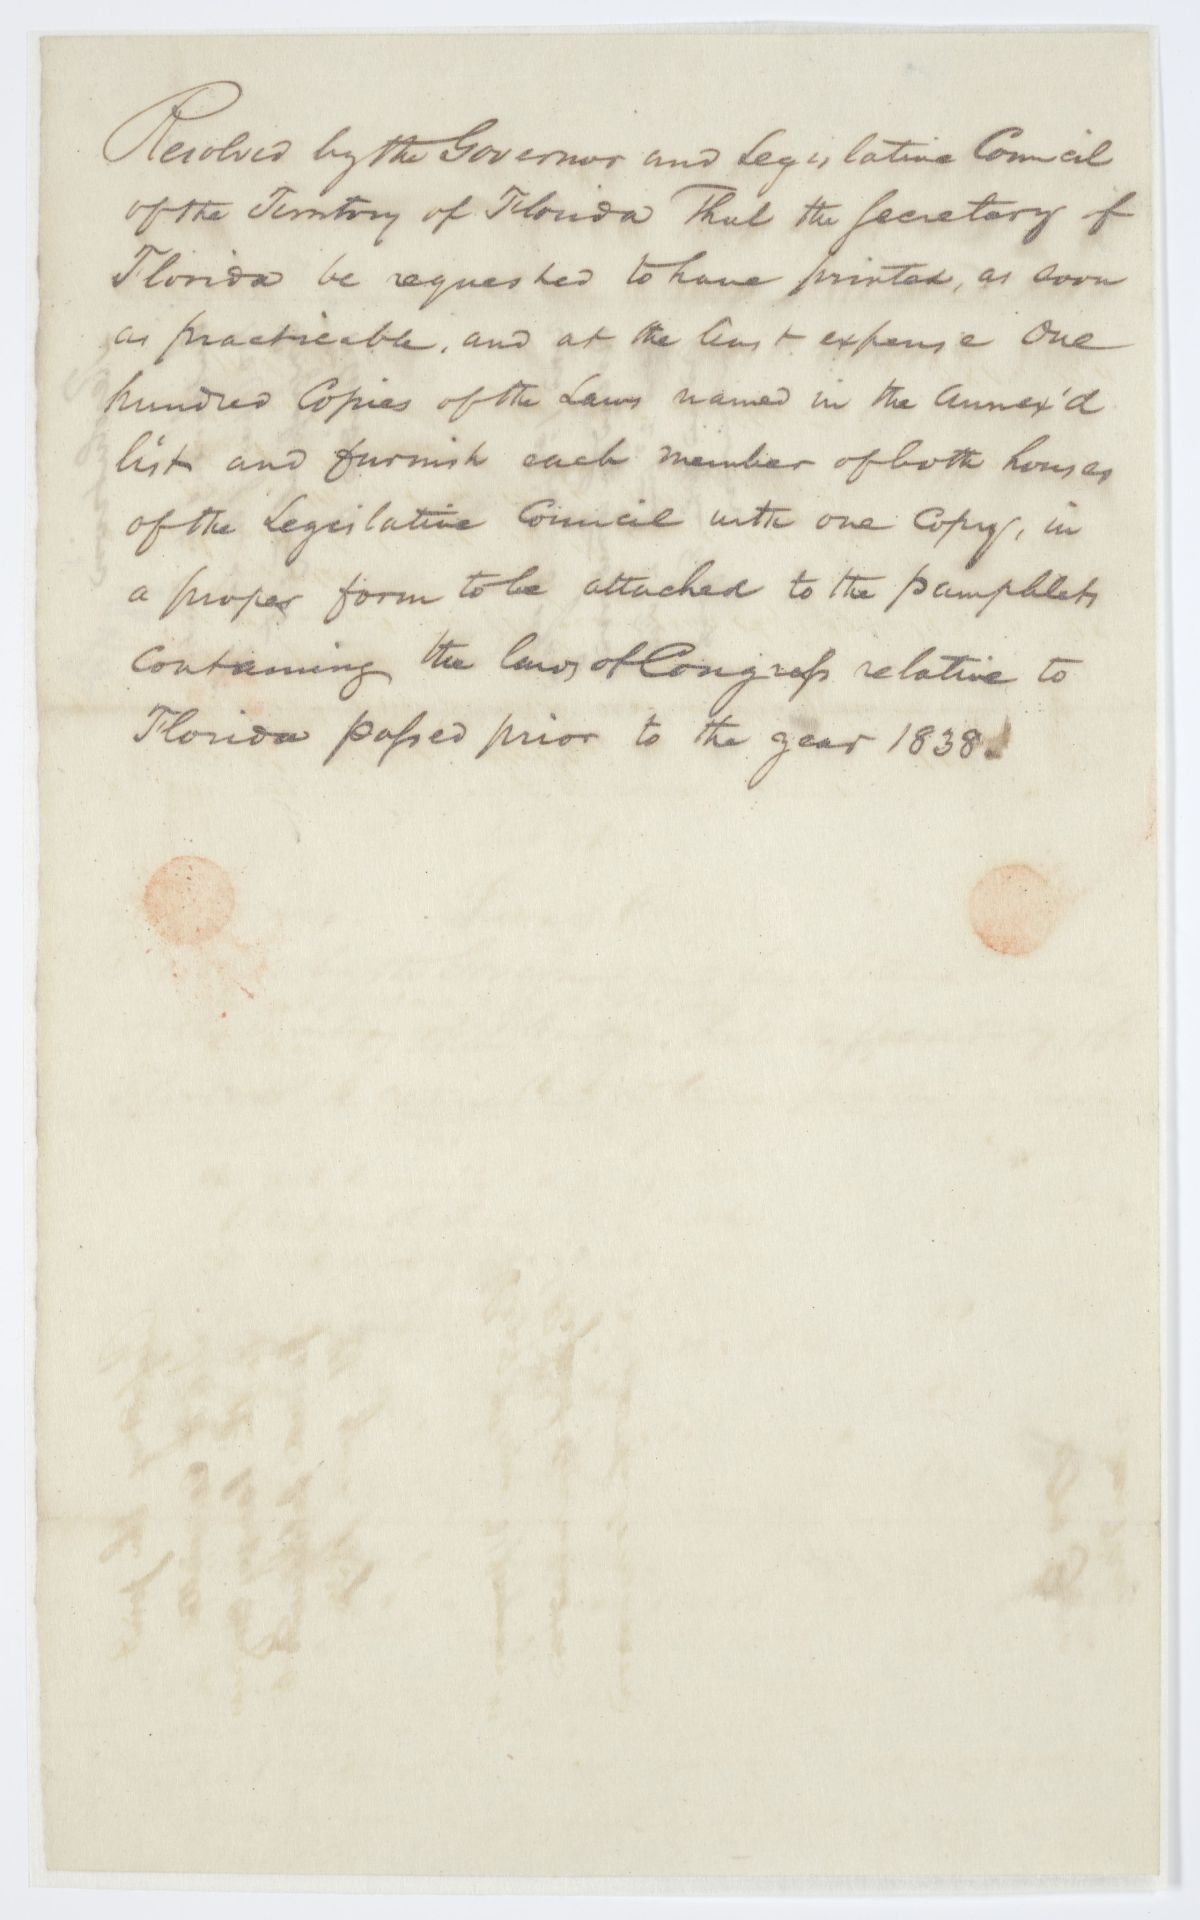 Resolved by the Governor and Legislative Council
of the Territory of Florida That the Secretary of
Florida be requested to have printed, as soon
as practicable, and at the least expense One
hundred Copies of the Laws named in the annex'd
list and furnish each member of both houses
of the Legislative Council with one Copy, in
a proper form to be attached to the pamphlets
containing the laws of Congress relative to
Florida passed prior to the year 1838.